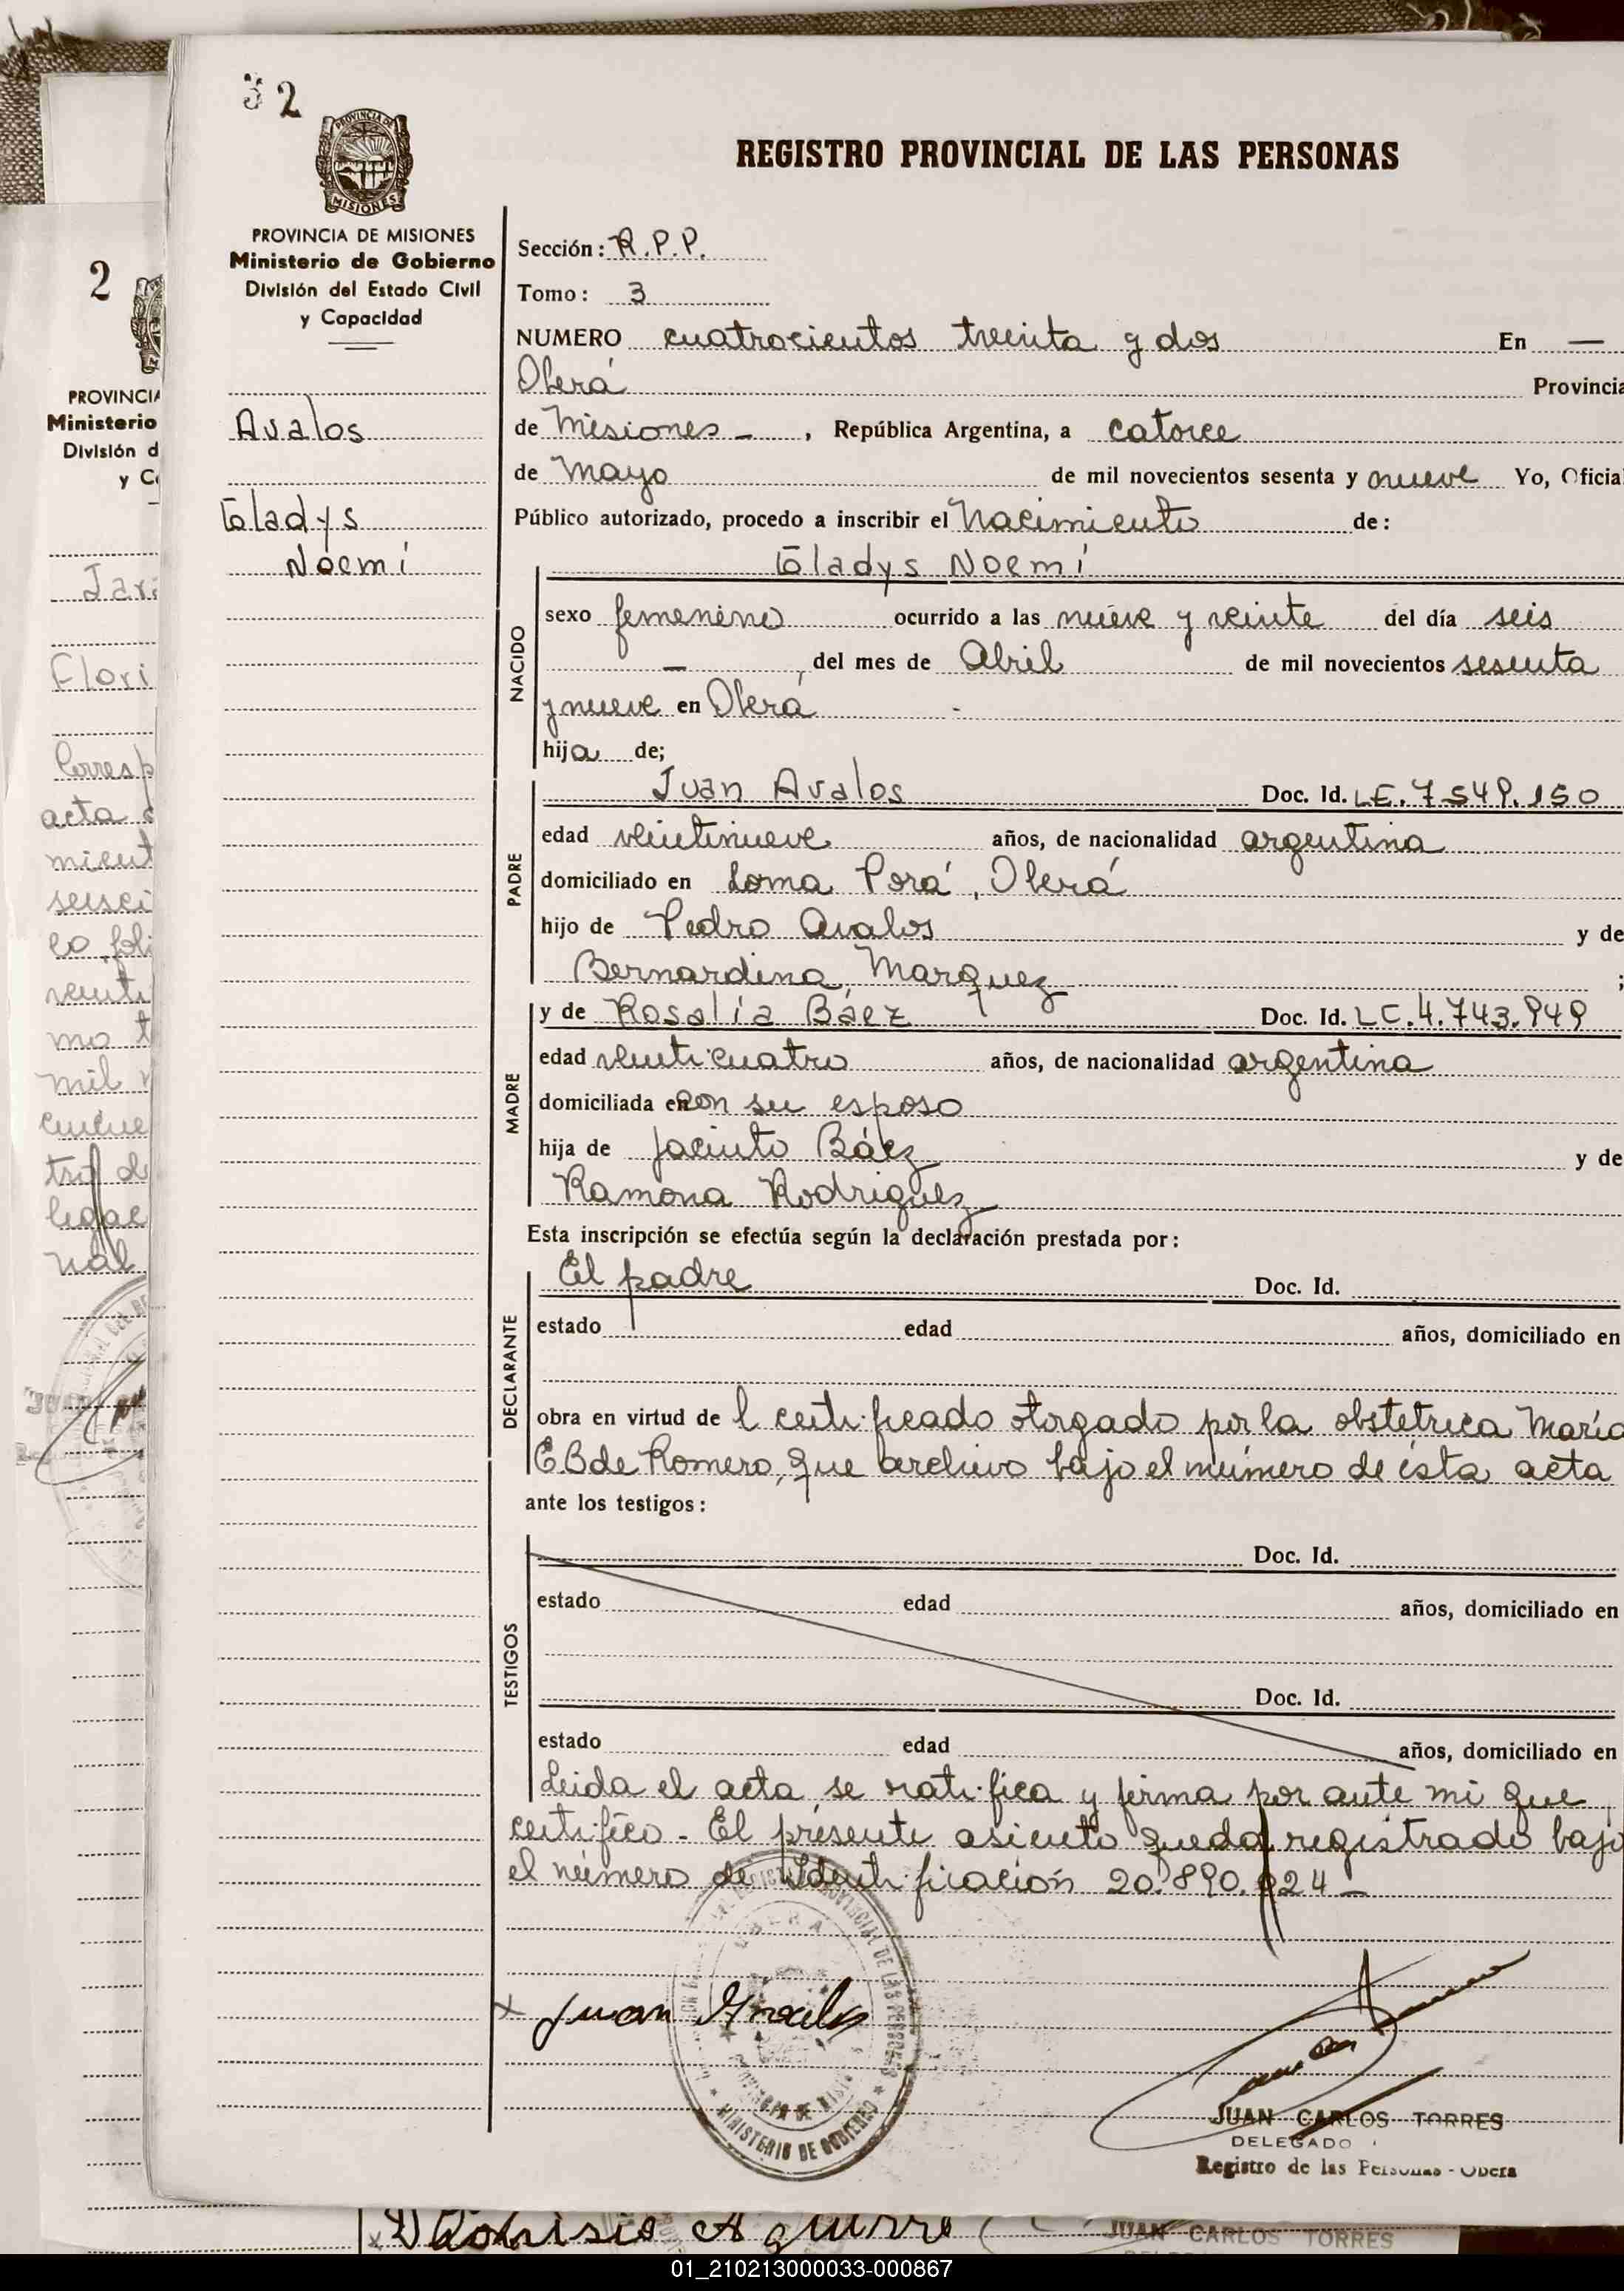 32
PROVINCIA DE
MISIONES
REGISTRO PROVINCIAL DE LAS PERSONAS
PROVINCIA DE MISIONES
Ministerio de Gobierno
División del Estado Civil
y Capacidad
Avalos
Gladys
Noemí
Sección: R.P.P.
Tomo: 3
NUMERO cuatrocientos treinta y dos En —
Oberá Provincia
de Misiones - , República Argentina, a catorce
de Mayo de mil novecientos sesenta y nueve Yo, Oficial
Público autorizado, procedo a inscribir el Nacimiento de:
NACIDO
Gladys Noemí
sexo femenino ocurrido a las nueve y veinte del día seis
— , del mes de Abril de mil novecientos sesenta
y nueve en Oberá -
hija de;
PADRE
Juan Avalos Doc. Id. L.E. 7.549.150
edad veintinueve años, de nacionalidad argentina
domiciliado en Loma Porá, Oberá
hijo de Pedro Avalos y de
Bernardina Marquez ;
MADRE
y de Rosalía Báez Doc. Id. L.C. 4.743.949
edad veinticuatro años, de nacionalidad argentina
domiciliada en con su esposo
hija de Jacinto Báez y de
Ramona Rodriguez
Esta inscripción se efectúa según la declaración prestada por:
DECLARANTE
El padre Doc. Id.
estado edad años, domiciliado en
obra en virtud de l certificado otorgado por la obstétrica María
E.B de Romero, que archivo bajo el número de ésta acta
ante los testigos:
TESTIGOS
Doc. Id.
estado edad años, domiciliado en
Doc. Id.
estado edad años, domiciliado en
Leida el acta se ratifica y firma por ante mi que
certifico - El presente asiento queda registrado bajo
el número de Identificación 20.890.024 -
MINISTERIO DE GOBIERNO
x Juan Avalos
JUAN CARLOS TORRES
DELEGADO
Registro de las Personas - Oberá
2
PROVINCIA
Ministerio
División d
y C
Jara
Flori
Corresp
acta
mient
seisci
co foli
veinti
mo t
mil n
cincue
tro de
legal
nal
x Dionisio Aguirre
JUAN CARLOS TORRES
01_210213000033-000867